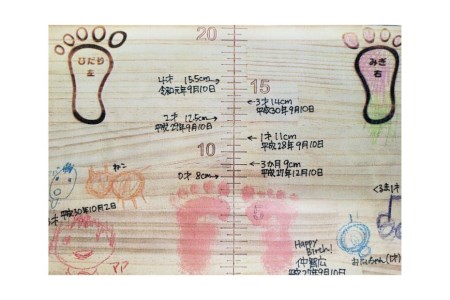 20
ひだり
左
みぎ
右
4才 15.5cm
令和元年9月10日
15
3才 14cm
平成30年9月10日
2才 12.5cm
平成29年9月10日
1才 11cm
平成28年9月10日
10
3か月 9cm
平成27年12月10日
ねこ
0才 8cm
平成30年10月2日
くるま
ママ
Happy
Birth!
平成27年9月10日